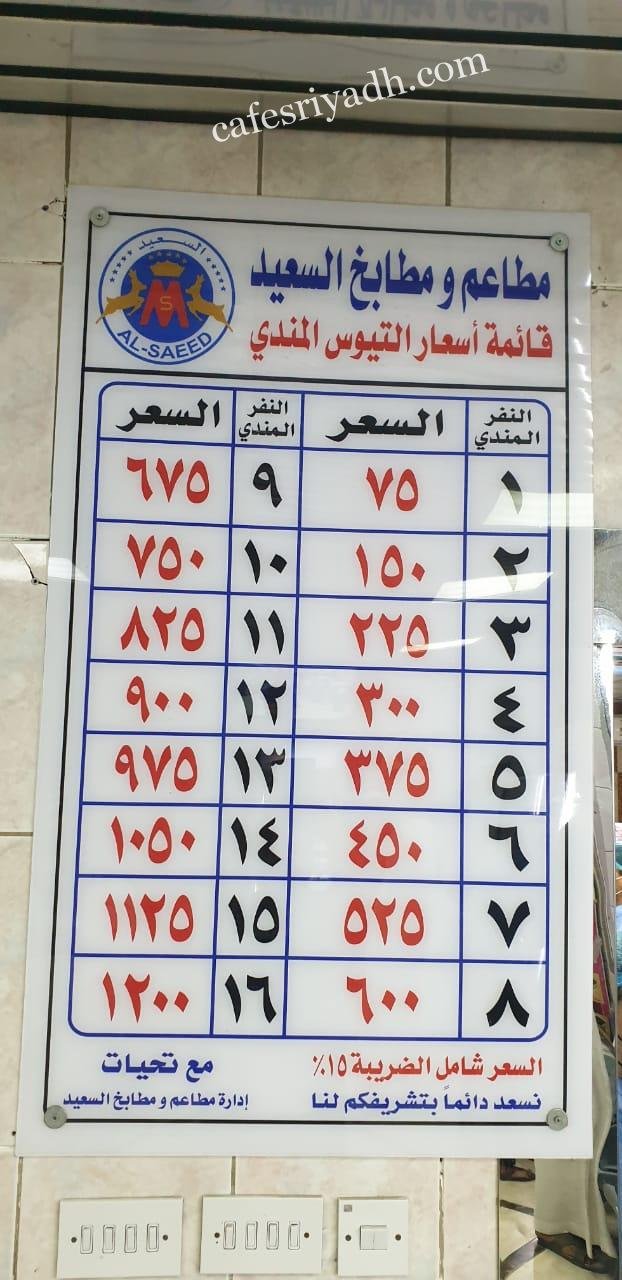 cafesriyadh.com
السعيد
MS
AL-SAEED
مطاعم و مطابخ السعيد
قائمة أسعار التيوس المندي
النفر المندي السعر النفر المندي السعر
١ ٧٥ ٩ ٦٧٥
٢ ١٥٠ ١٠ ٧٥٠
٣ ٢٢٥ ١١ ٨٢٥
٤ ٣٠٠ ١٢ ٩٠٠
٥ ٣٧٥ ١٣ ٩٧٥
٦ ٤٥٠ ١٤ ١٠٥٠
٧ ٥٢٥ ١٥ ١١٢٥
٨ ٦٠٠ ١٦ ١٢٠٠
السعر شامل الضريبة ١٥٪ مع تحيات
نسعد دائماً بتشريفكم لنا إدارة مطاعم و مطابخ السعيد